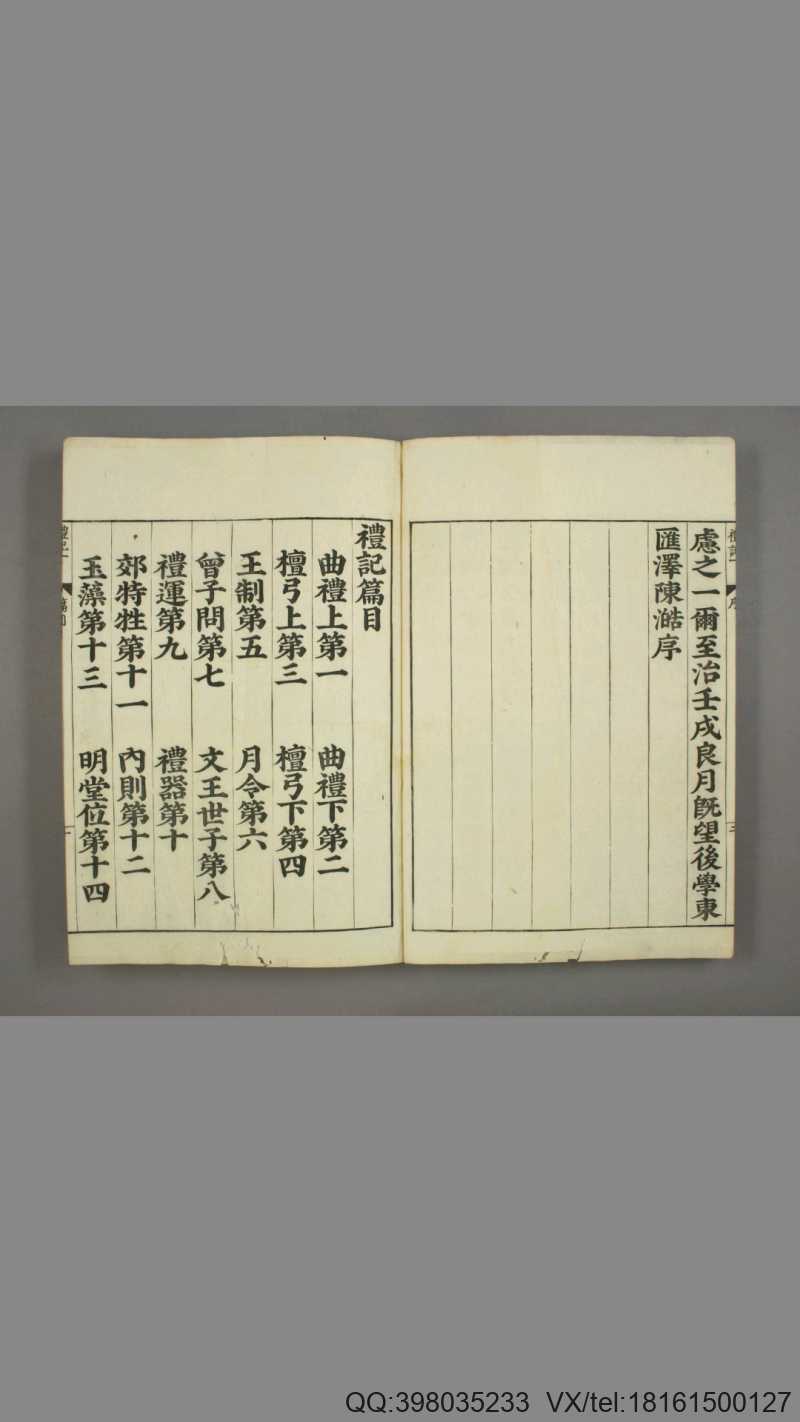 慮之一爾至治壬戌良月旣望後學東
匯澤陳澔序
禮記篇目
曲禮上第一 曲禮下第二
檀弓上第三 檀弓下第四
王制第五 月令第六
曾子問第七 文王世子第八
禮運第九 禮器第十
郊特牲第十一 內則第十二
玉藻第十三 明堂位第十四
QQ:398035233 VX/tel:18161500127